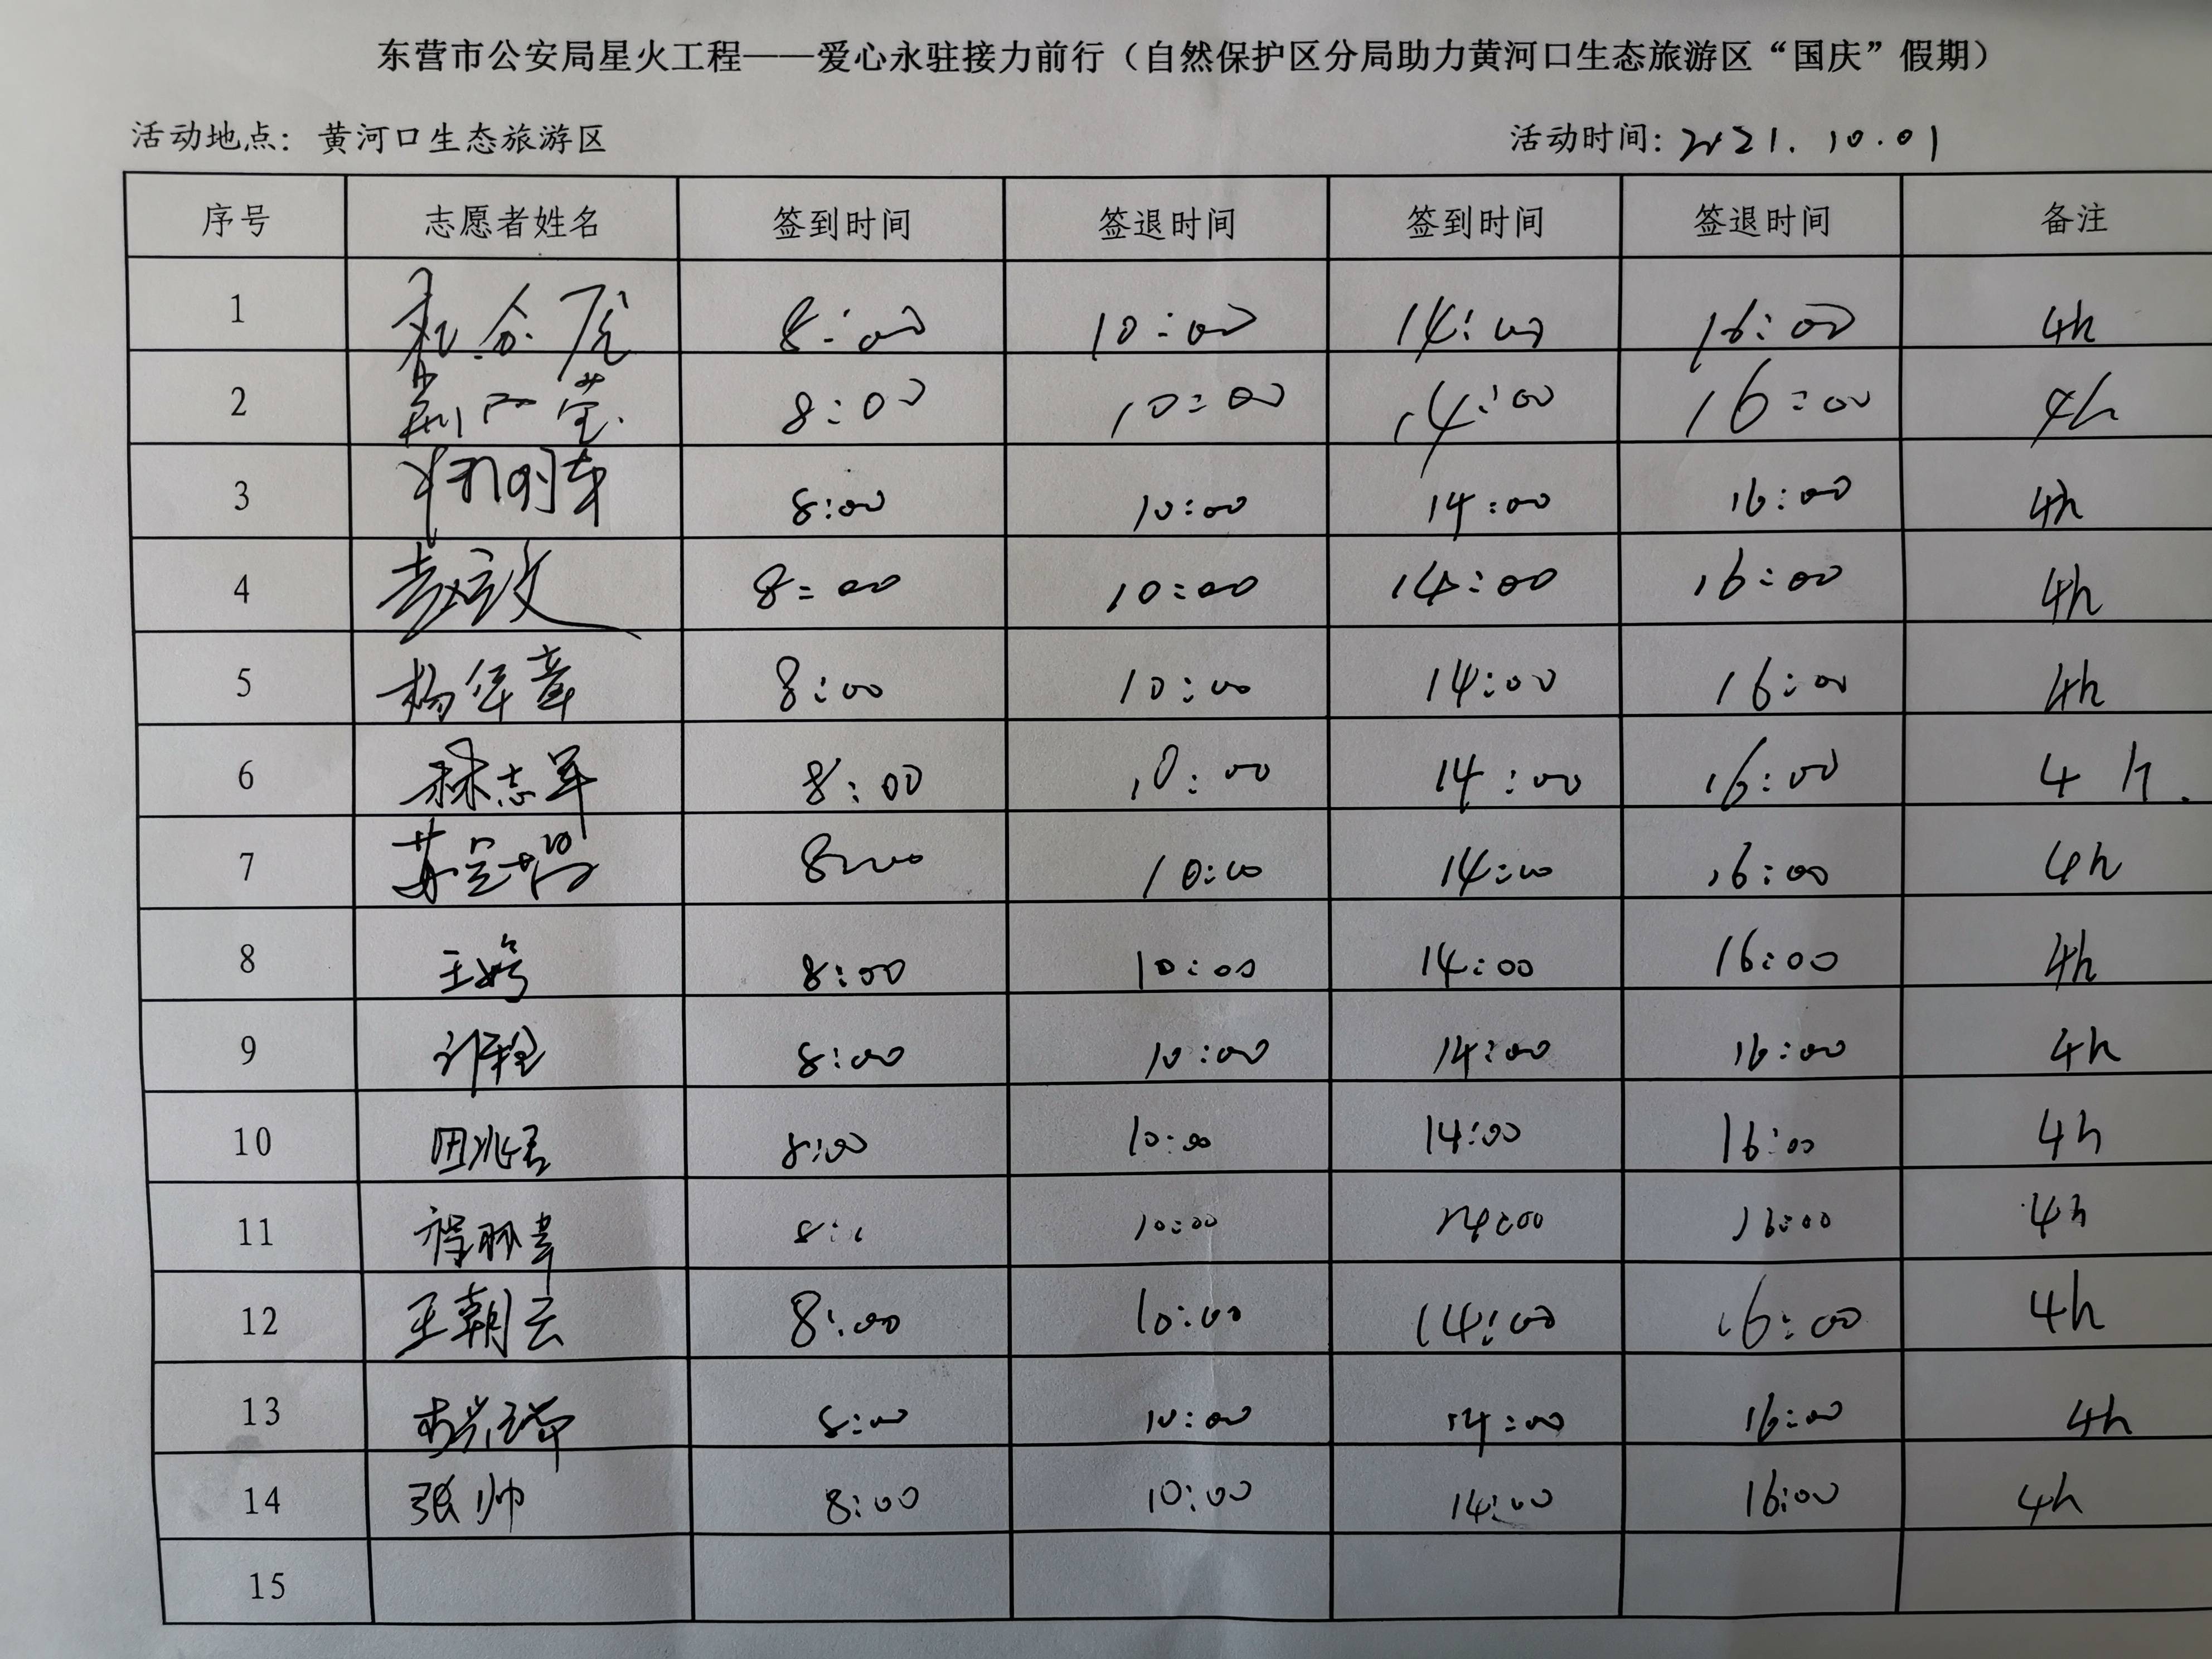 东营市公安局星火工程——爱心永驻接力前行（自然保护区分局助力黄河口生态旅游区“国庆”假期）
活动地点：黄河口生态旅游区 活动时间：2021.10.01
序号 志愿者姓名 签到时间 签退时间 签到时间 签退时间 备注
1 8:00 10:00 14:00 16:00 4h
2 8:00 10:00 14:00 16:00 4h
3 8:00 10:00 14:00 16:00 4h
4 8:00 10:00 14:00 16:00 4h
5 杨华章 8:00 10:00 14:00 16:00 4h
6 林志军 8:00 10:00 14:00 16:00 4h.
7 8:00 10:00 14:00 16:00 4h
8 8:00 10:00 14:00 16:00 4h
9 许程 8:00 10:00 14:00 16:00 4h
10 田兆君 8:00 10:00 14:00 16:00 4h
11 10:00 14:00 16:00 4h
12 王朝云 8:00 10:00 14:00 16:00 4h
13 8:00 10:00 14:00 16:00 4h
14 张帅 8:00 10:00 14:00 16:00 4h
15